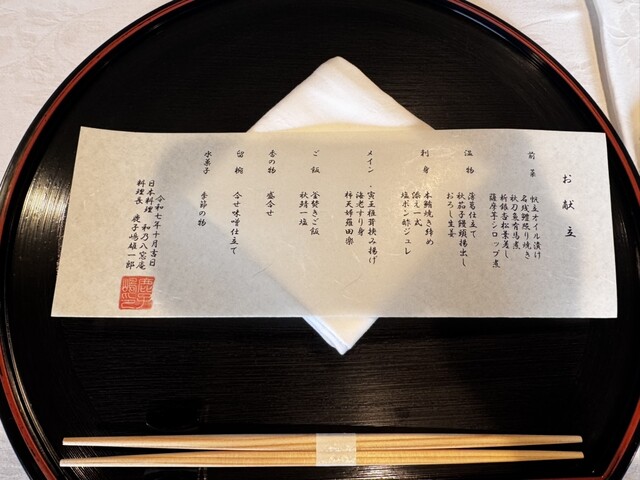 お献立
前菜
帆立オイル漬け
名残鱧照り焼き
秋刀魚有馬煮
新銀杏松葉差し
薩摩芋シロップ煮
温物
薄葛仕立て
秋茄子饅頭揚出し
おろし生姜
刺身
本鮪焼き締め
添え一式
塩ポン酢ジュレ
メイン
・寅王椎茸挟み揚げ
海老すり身
柿天婦羅田楽
ご飯
釜焚きご飯
秋鯖一塩
香の物
盛合せ
留椀
合せ味噌仕立て
水菓子
季節の物
令和七年十月吉日
日本料理 和乃八窓庵
料理長 鹿子嶋雄一郎